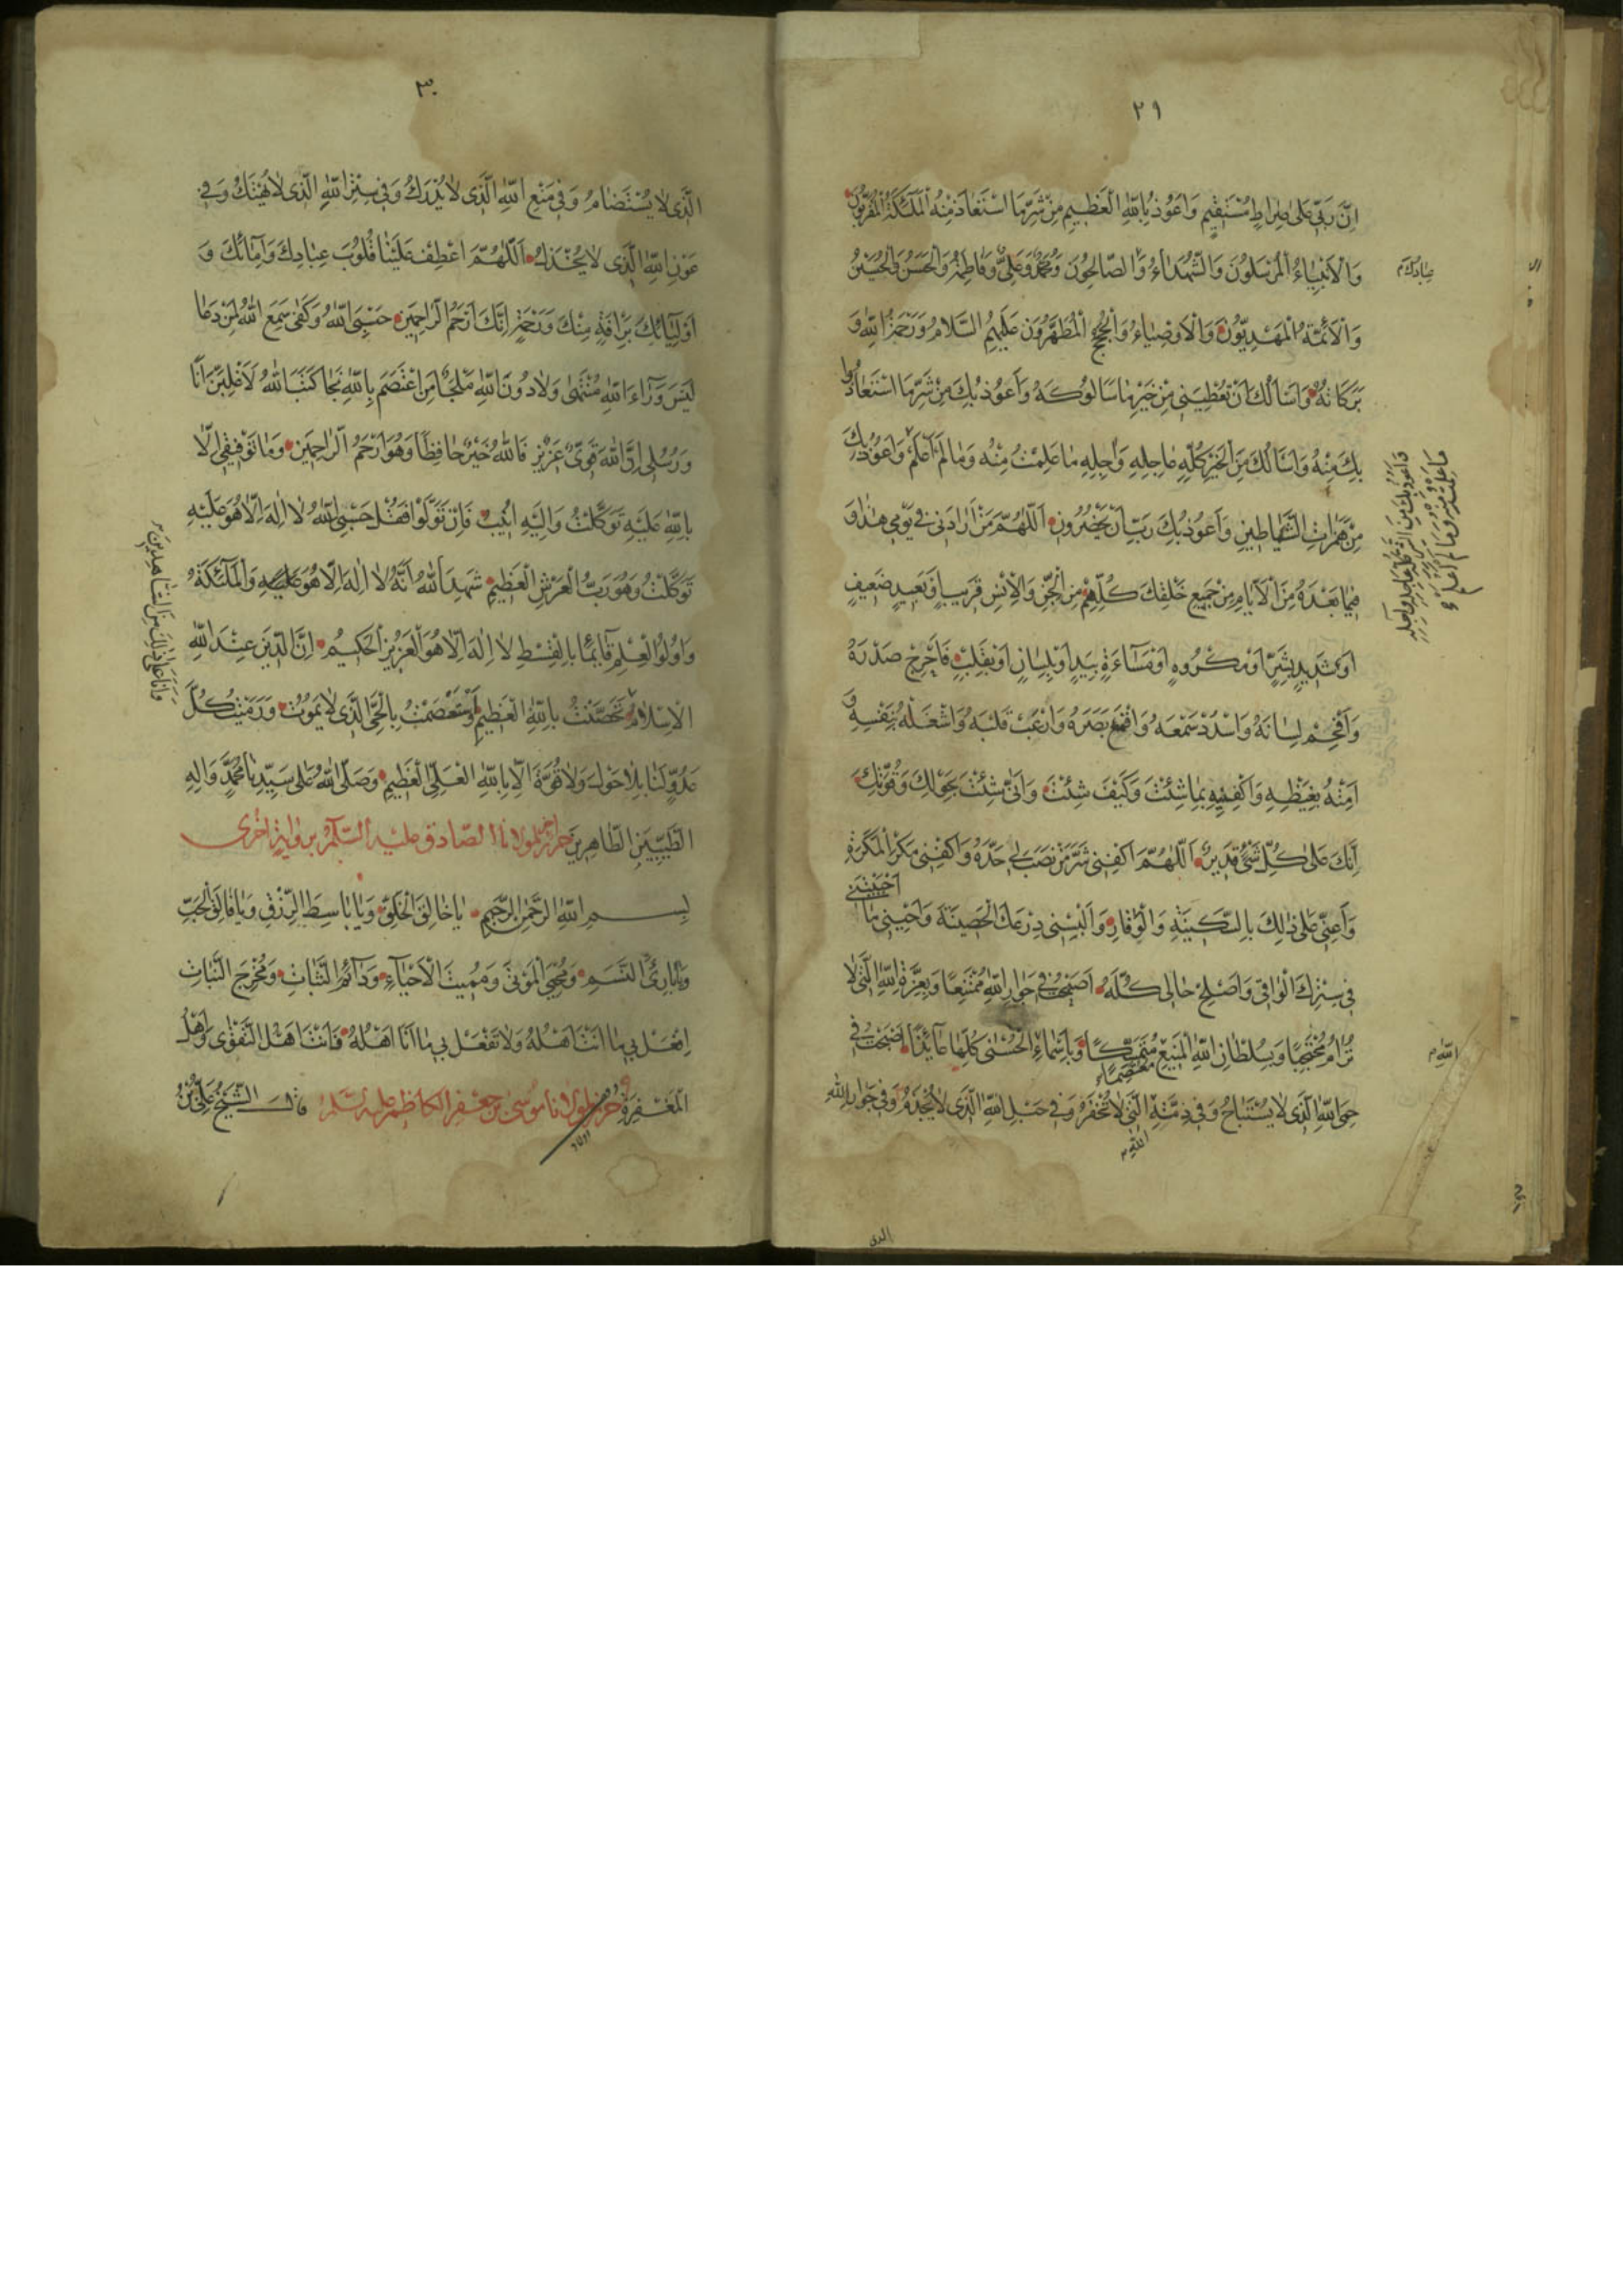 ٢٩
اِنَّ رَبّي عَلى صِراطٍ مُسْتَقيمٍ وَاَعُوذُ بِاللهِ الْعَظيمِ مِنْ شَرِّ مَا اسْتَعاذَ مِنْهُ الْمَلٰٓئكَةُ الْمُقَرَّبُونَ
وَالْاَنْبِياءُ الْمُرْسَلُونَ وَالشُّهَداءُ وَالصّالِحُونَ وَمُحَمَّدٌ وَعَلِيٌّ وَفاطِمَةُ وَالْحَسَنُ وَالْحُسَيْنُ
وَالْاَئِمَّةُ الْمَهْدِيُّونَ وَالْاَوْصِياءُ وَالْحُجَجُ الْمُطَهَّرُونَ عَلَيْهِمُ السَّلامُ وَرَحْمَةُ اللهِ وَ
بَرَكاتُهُ وَاَسْاَلُكَ اَنْ تُعْطِيَني مِنْ خَيْرِ ما سَاَلُوكَهُ وَاَعُوذُ بِكَ مِنْ شَرِّ مَا اسْتَعاذُوا
بِكَ مِنْهُ وَاَسْاَلُكَ مِنَ الْخَيْرِ كُلِّهِ عاجِلِهِ وَاٰجِلِهِ ما عَلِمْتُ مِنْهُ وَما لَمْ اَعْلَمْ وَاَعُوذُ بِكَ
مِنْ هَمَزاتِ الشَّياطينِ وَاَعُوذُ بِكَ رَبِّ اَنْ يَحْضُرُونِ اَللّهُمَّ مَنْ اَرادَني في يَوْمي هٰذا وَ
فيما بَعْدَهُ مِنَ الْاَيّامِ مِنْ جَميعِ خَلْقِكَ كُلِّهِمْ مِنَ الْجِنِّ وَالْاِنْسِ قَريبٍ اَوْ بَعيدٍ ضَعيفٍ
اَوْ شَديدٍ بِشَرٍّ اَوْ مَكْرُوهٍ اَوْ مَسآءَةٍ بِيَدٍ اَوْ بِلِسانٍ اَوْ بِقَلْبٍ فَاَحْرِجْ صَدْرَهُ
وَاَفْحِمْ لِسانَهُ وَاسْدُدْ سَمْعَهُ وَاقْمَعْ بَصَرَهُ وَارْعَبْ قَلْبَهُ وَاشْغَلْهُ بِنَفْسِهِ وَ
اَمِتْهُ بِغَيْظِهِ وَاكْفِنيهِ بِما شِئْتَ وَكَيْفَ شِئْتَ وَاَنّى شِئْتَ بِحَوْلِكَ وَقُوَّتِكَ
اِنَّكَ عَلى كُلِّ شَيْءٍ قَديرٌ اَللّهُمَّ اكْفِني شَرَّ مَنْ نَصَبَ لي حَدَّهُ وَاكْفِني مَكْرَ الْمَكَرَةِ
وَاَعِنّي عَلى ذٰلِكَ بِالسَّكينَةِ وَالْوَقارِ وَاَلْبِسْني دِرْعَكَ الْحَصينَةَ وَاَحْيِني ما
اَحْيَيْتَني
في سِتْرِكَ الْواقي وَاَصْلِحْ حالي كُلَّهُ اَصْبَحْتُ في جِوارِ اللهِ مُمْتَنِعًا وَبِعِزَّةِ اللهِ الَّتي لا
تُرامُ مُحْتَجِبًا وَبِسُلْطانِ اللهِ الْمَنيعِ مُتَمَسِّكًا وَبِاَسْماءِ الْحُسْنى كُلِّها عائِذًا اَصْبَحْتُ في
حِمَى اللهِ الَّذي لا يُسْتَباحُ وَفي ذِمَّتِهِ الَّتي لا تُخْفَرُ وَفي حَبْلِ اللهِ الَّذي لا يُجْذَمُ وَفي جِوارِ اللهِ
اللهِ
عبادك
وَاَعُوذُ بِكَ مِنَ الشَّرِّ كُلِّهِ عاجِلِهِ وَاٰجِلِهِ
ما عَلِمْتُ مِنْهُ وَما لَمْ اَعْلَمْ
اللهِ
الذى
٣٠
الَّذي لا يُسْتَضامُ وَفي مَنْعِ اللهِ الَّذي لا يُدْرَكُ وَفي سِتْرِ اللهِ الَّذي لا يُهْتَكُ وَفي
عَوْنِ اللهِ الَّذي لا يُخْذَلُ اَللّهُمَّ اعْطِفْ عَلَيْنا قُلُوبَ عِبادِكَ وَاِمآئِكَ وَ
اَوْلِيآئِكَ بِرَأْفَةٍ مِنْكَ وَرَحْمَةٍ اِنَّكَ اَرْحَمُ الرّاحِمينَ حَسْبِيَ اللهُ وَكَفى سَمِعَ اللهُ لِمَنْ دَعا
لَيْسَ وَرآءَ اللهِ مُنْتَهى وَلا دُونَ اللهِ مَلْجَأٌ مَنِ اعْتَصَمَ بِاللهِ نَجا كَتَبَ اللهُ لَاَغْلِبَنَّ اَنَا
وَرُسُلي اِنَّ اللهَ قَوِيٌّ عَزيزٌ فَاللهُ خَيْرٌ حافِظًا وَهُوَ اَرْحَمُ الرّاحِمينَ وَما تَوْفيقي اِلّا
بِاللهِ عَلَيْهِ تَوَكَّلْتُ وَاِلَيْهِ اُنيبُ فَاِنْ تَوَلَّوْا فَقُلْ حَسْبِيَ اللهُ لا اِلهَ اِلّا هُوَ عَلَيْهِ
تَوَكَّلْتُ وَهُوَ رَبُّ الْعَرْشِ الْعَظيمِ شَهِدَ اللهُ اَنَّهُ لا اِلهَ اِلّا هُوَ وَالْمَلٰٓئكَةُ
وَاُولُوا الْعِلْمِ قآئِمًا بِالْقِسْطِ لا اِلهَ اِلّا هُوَ الْعَزيزُ الْحَكيمُ اِنَّ الدّينَ عِنْدَ اللهِ
الْاِسْلامُ تَحَصَّنْتُ بِاللهِ الْعَظيمِ وَاسْتَعْصَمْتُ بِالْحَيِّ الَّذي لا يَمُوتُ وَرَمَيْتُ كُلَّ
عَدُوٍّ لَنا بِلا حَوْلَ وَلا قُوَّةَ اِلّا بِاللهِ الْعَلِيِّ الْعَظيمِ وَصَلَّى اللهُ عَلى سَيِّدِنا مُحَمَّدٍ وَالِهِ
الطَّيِّبينَ الطّاهِرينَ حرز اخر لمولانا الصّادق عليه السّلام برواية اخرى
بِسْمِ اللهِ الرَّحْمٰنِ الرَّحيمِ يا خالِقَ الْخَلْقِ وَيا باسِطَ الرِّزْقِ وَيا فالِقَ الْحَبِّ
وَيا بارِئَ النَّسَمِ وَمُحْيِيَ الْمَوْتى وَمُميتَ الْاَحْيآءِ وَدآئِمَ الثَّباتِ وَمُخْرِجَ النَّباتِ
اِفْعَلْ بي ما اَنْتَ اَهْلُهُ وَلا تَفْعَلْ بي ما اَنَا اَهْلُهُ فَاَنْتَ اَهْلُ التَّقْوى وَاَهْلُ
الْمَغْفِرَةِ حرز لمولانا موسى بن جعفر الكاظم عليه السلام قالَ الشَّيْخُ عَلِيُّ بْنُ
وَاَنَا عَلى ذٰلِكَ مِنَ الشّاهِدينَ